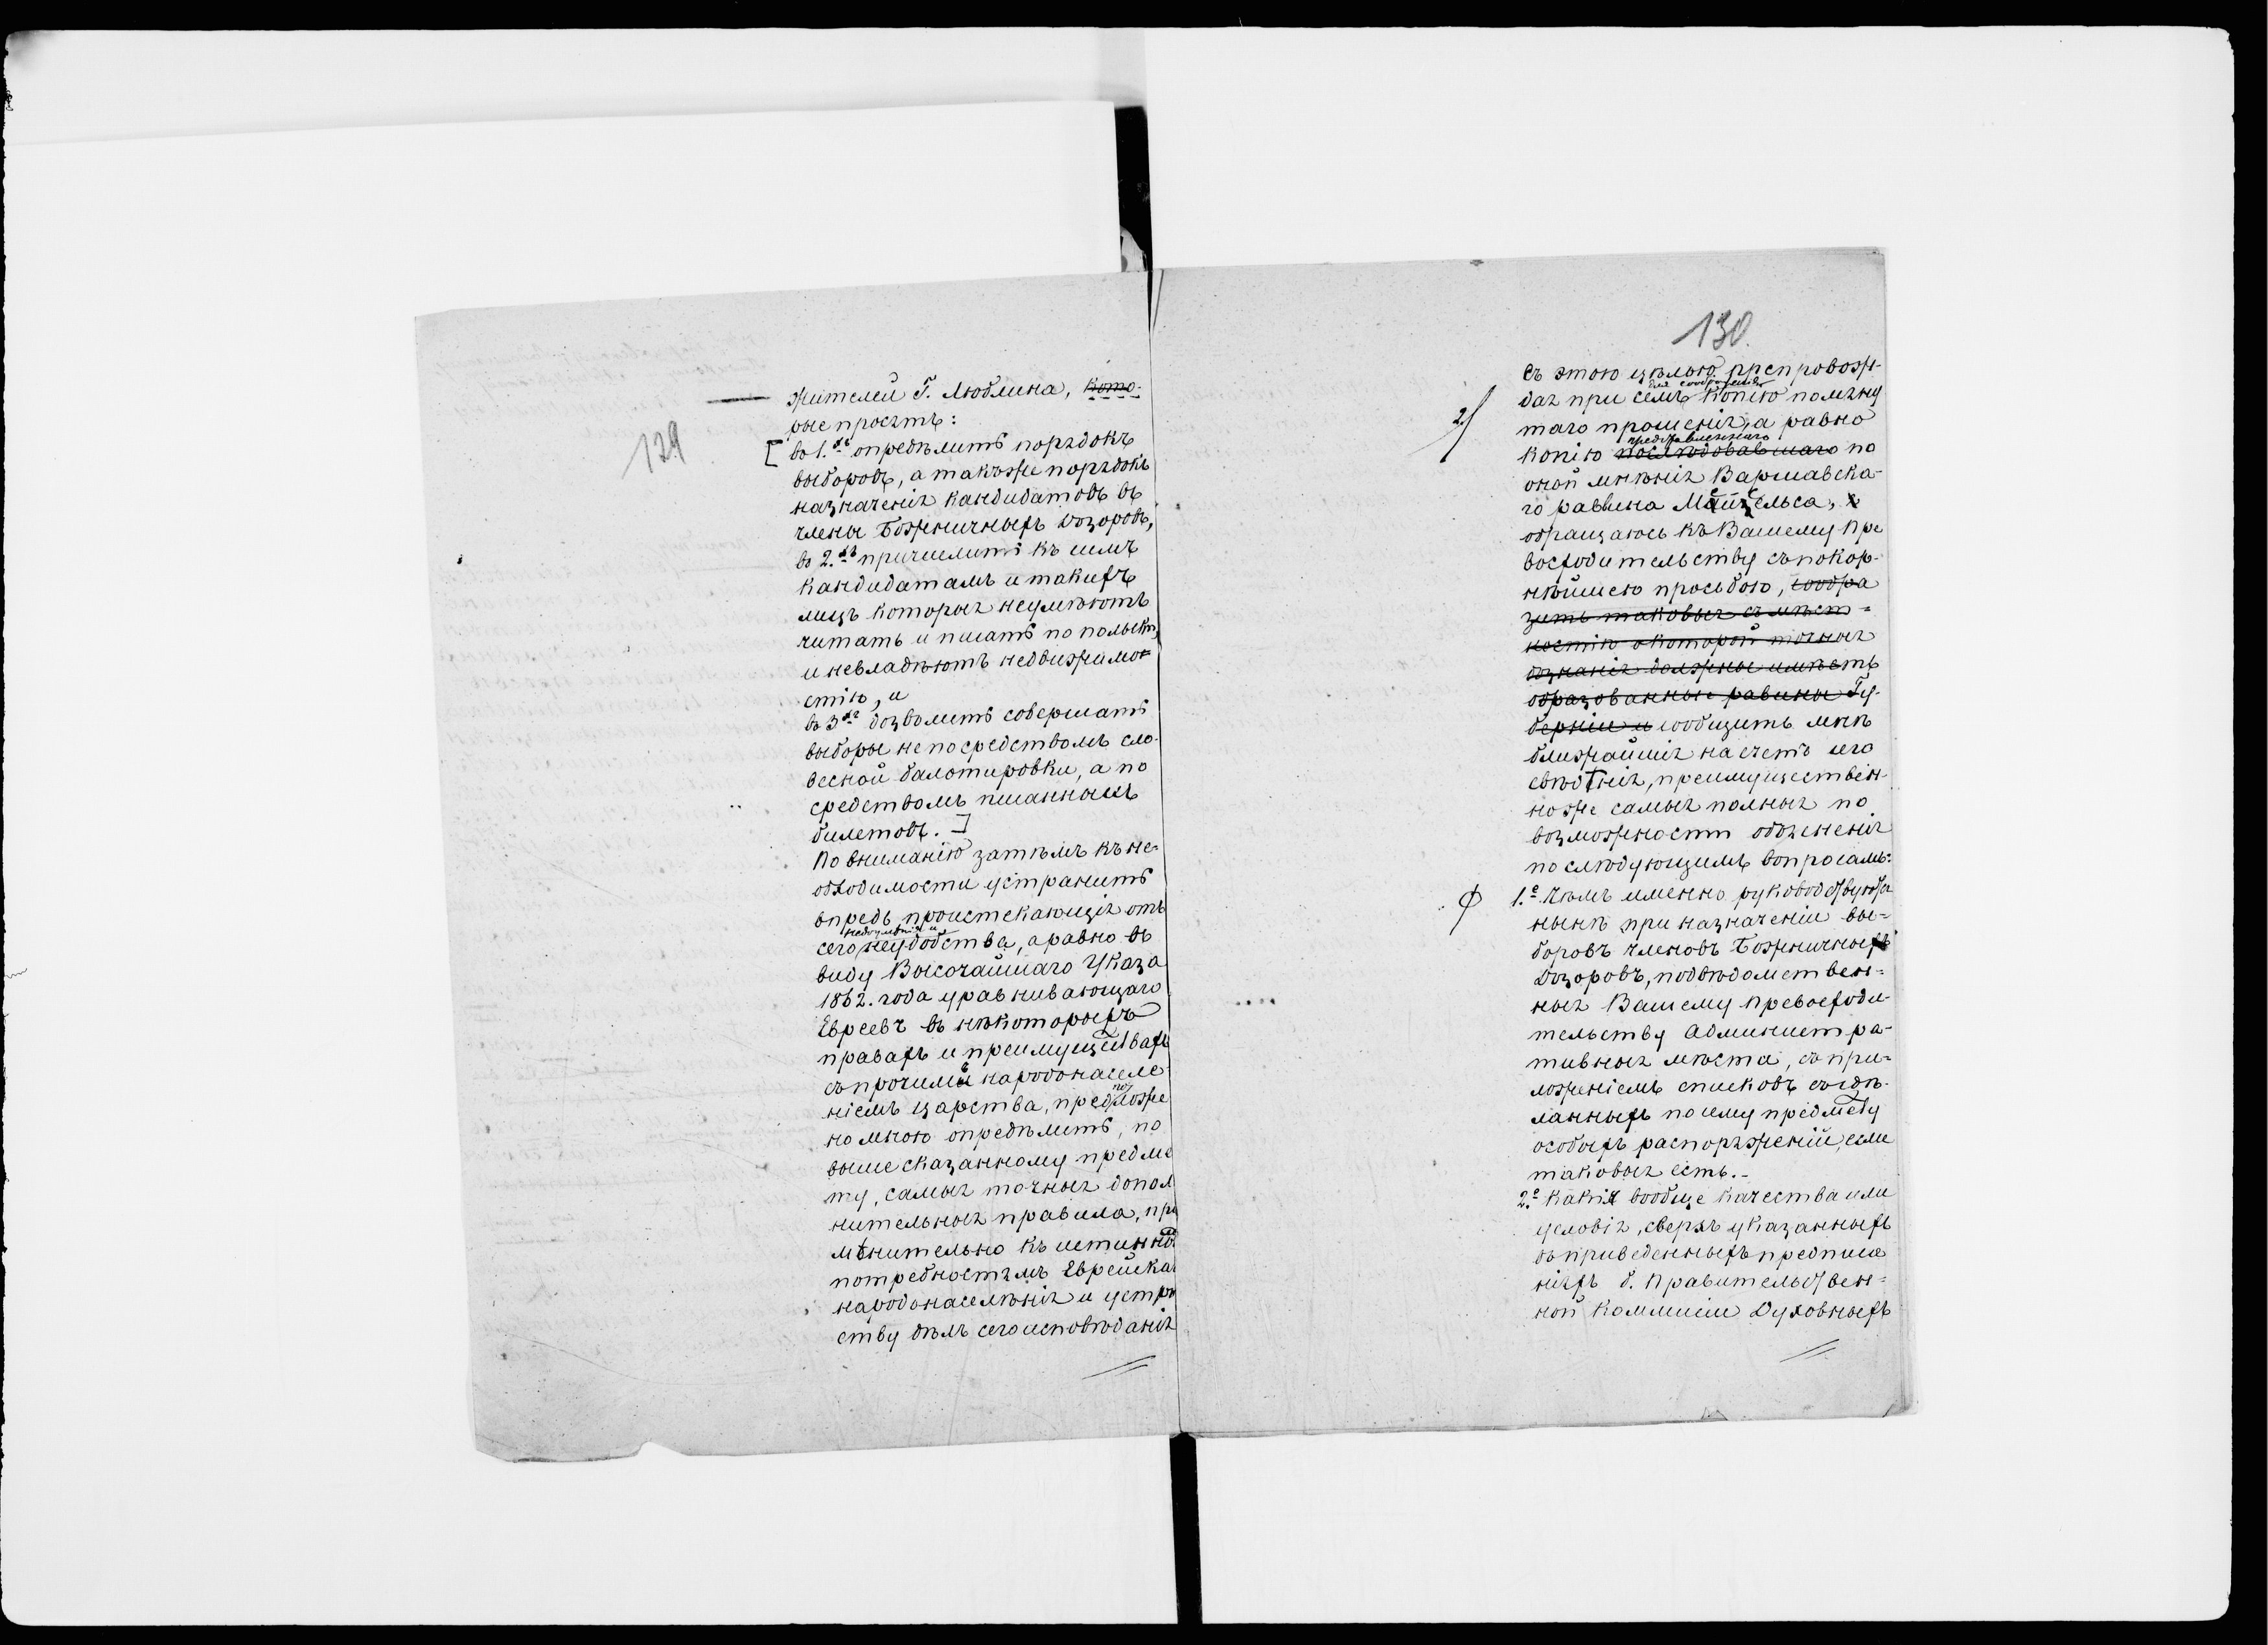 129
жителей Г. Люблина, кото-
рые просятъ:
[во 1.хъ опредѣлить порядокъ
выборовъ, а такъже порядокъ
назначенія кандидатовъ въ
члены Божничныхъ Дозоровъ,
во 2.хъ причислить къ симъ
кандидатамъ и такихъ
лицъ которыя неумѣютъ
читать и писать по польски,
и невладѣютъ недвижимо-
стію, и
въ 3хъ дозволить совершать
выборы не посредствомъ сло-
весной балотировки, а по
средствомъ писанныхъ
билетовъ.]
По вниманію затѣмъ къ не-
обходимости устранить
впредь проистекающія отъ
недоумѣнія и
сего неудобства, а равно въ
виду Высочайшаго Указа
1862. года уравнивающаго
Евреевъ въ нѣкоторыхъ
правахъ и преимуществахъ
съ прочимъ народонаселе-
ніемъ царства, предположе
но мною опредѣлить, по
вышесказанному предме
ту, самыя точныя допол
нительныя правила, при
мѣнительно къ истинно
потребностямъ Еврейска
народонаселѣнія и устро
ству дѣлъ сего исповѣданія
130.
Съ этою цѣлью препровож-
для соображенія
дая при семъ копію помяну
2/ таго прошенія, а равно
представленнаго
копію послѣдовавшаго по
оной мнѣнія Варшавска-
го раввина Мейзельса,
обращаюсь къ Вашему Пре
восходительству съ покор-
нѣйшею просьбою, сообра
зить таковыя съ мѣст-
ностію о которой точныя
познанія должны имѣть
образованные равины Гу-
берніи и сообщить мнѣ
ближайшія на счетъ его
свѣдѣнія, преимуществен-
но же самыя полныя по
возможности объясненія
по слѣдующимъ вопросамъ:
1.е Чѣмъ именно руководствуются
нынѣ при назначеніи вы-
боровъ членовъ Божничныхъ
Дозоровъ, подвѣдомствен-
ныя Вашему Превосходи-
тельству Администра-
тивныя мѣста, съ при-
ложеніемъ списковъ сдѣ-
ланныхъ по сему предмету
особыхъ распоряженій, если
таковыя есть.-
2.е Какія вообще качества или
условія, сверхъ указанныхъ
въ приведенныхъ предписа
ніяхъ б. Правительствен-
ной Коммисіи Духовныхъ